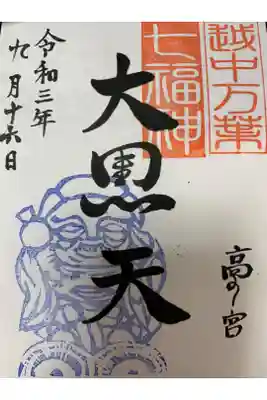 越中万葉
七福神
大黒天
高の宮
令和三年
九月十六日